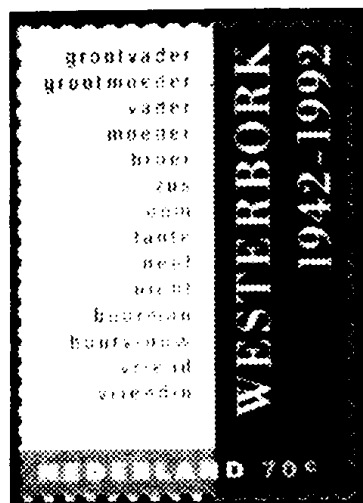 grootvader
grootmoeder
vader
moeder
broer
zus
oom
tante
neef
nicht
buurman
buurvrouw
vriend
vriendin
WESTERBORK
1942-1992
NEDERLAND 70 c